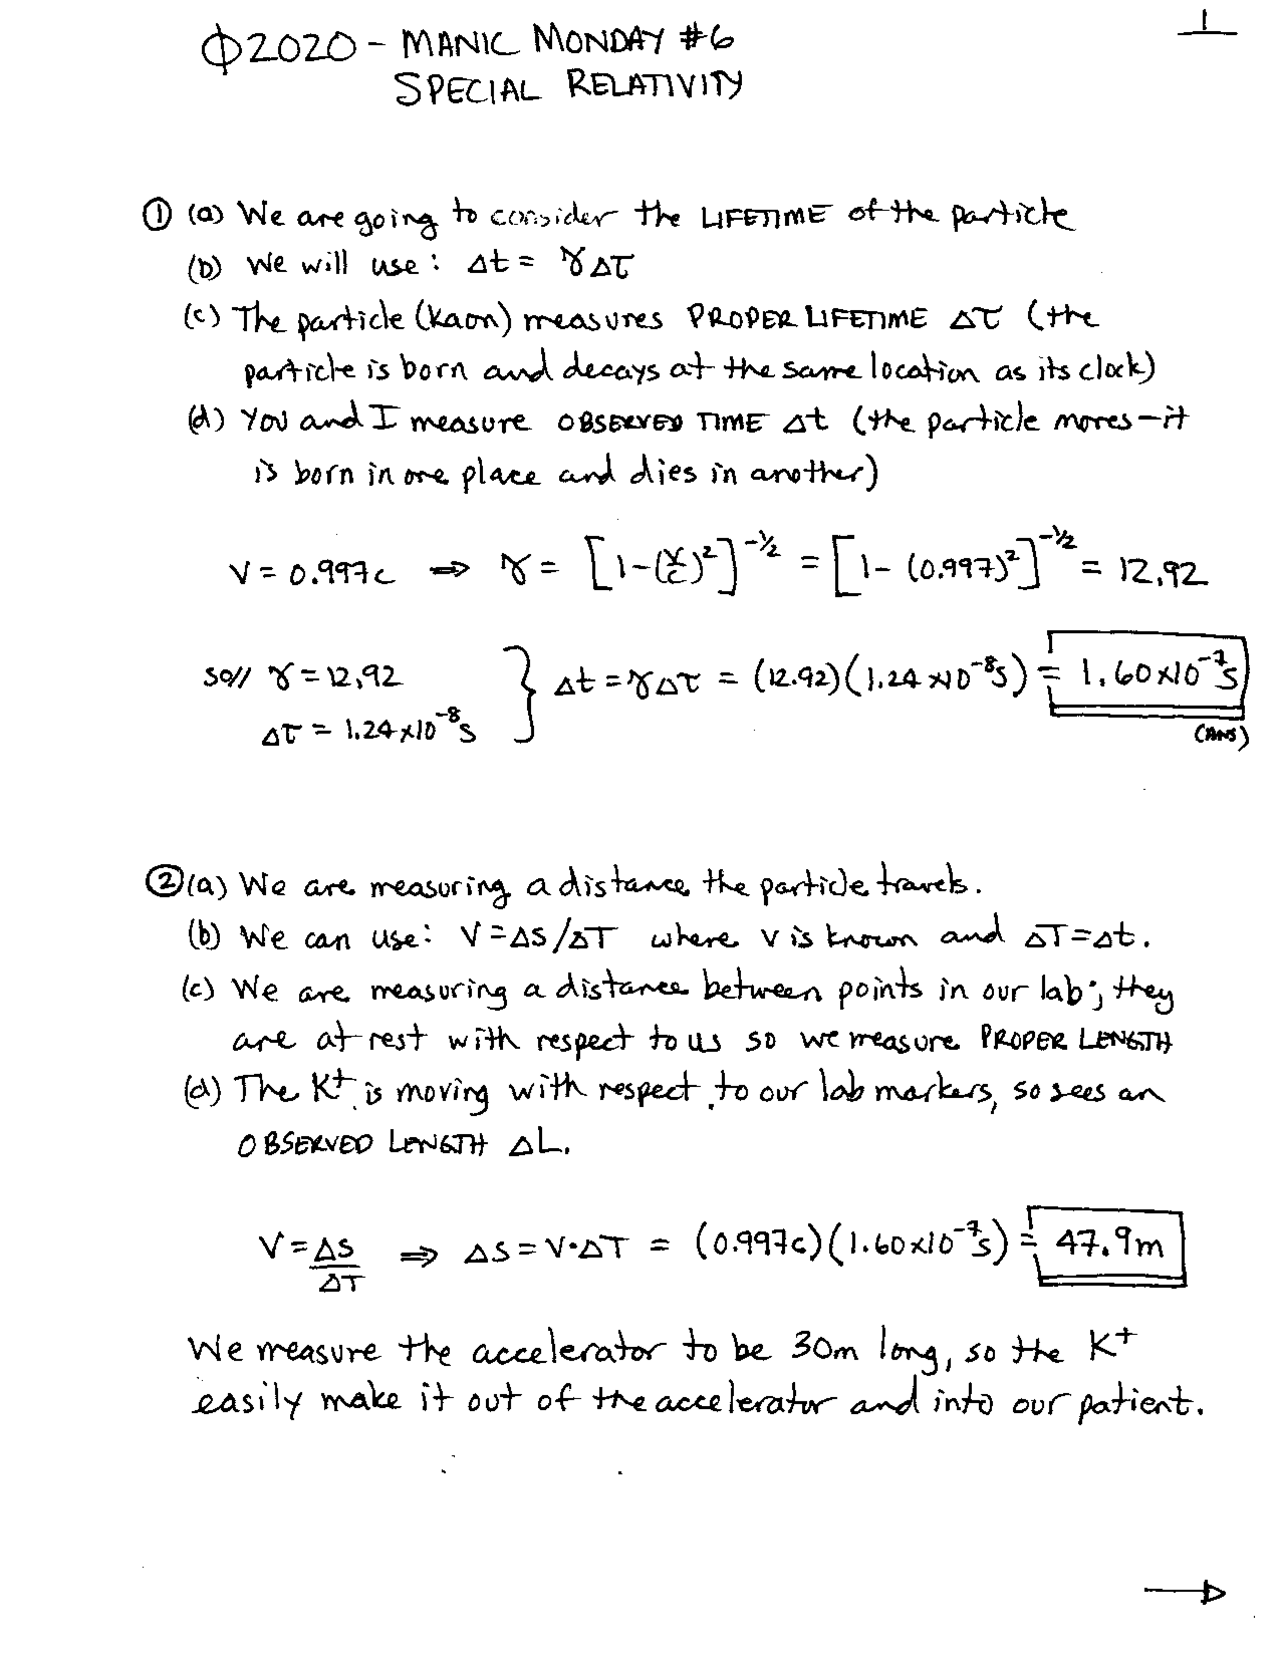 1
Φ2020 - MANIC MONDAY #6
SPECIAL RELATIVITY
① (a) We are going to consider the LIFETIME of the particle
(b) We will use: Δt = γΔτ
(c) The particle (kaon) measures PROPER LIFETIME Δτ (the
particle is born and decays at the same location as its clock)
(d) You and I measure OBSERVED TIME Δt (the particle moves - it
is born in one place and dies in another)
v = 0.997c ⇒ γ = [1-(v/c)²]^-½ = [1-(0.997)²]^-½ = 12.92
so// γ = 12.92 } Δt = γΔτ = (12.92)(1.24×10^-8 s) = 1.60×10^-7 s
Δτ = 1.24×10^-8 s (ANS)
② (a) We are measuring a distance the particle travels.
(b) We can use: V = ΔS/ΔT where v is known and ΔT = Δt.
(c) We are measuring a distance between points in our lab; they
are at rest with respect to us so we measure PROPER LENGTH
(d) The K⁺ is moving with respect to our lab markers, so sees an
OBSERVED LENGTH ΔL.
V = ΔS/ΔT ⇒ ΔS = V·ΔT = (0.997c)(1.60×10^-7 s) = 47.9m
We measure the accelerator to be 30m long, so the K⁺
easily make it out of the accelerator and into our patient.